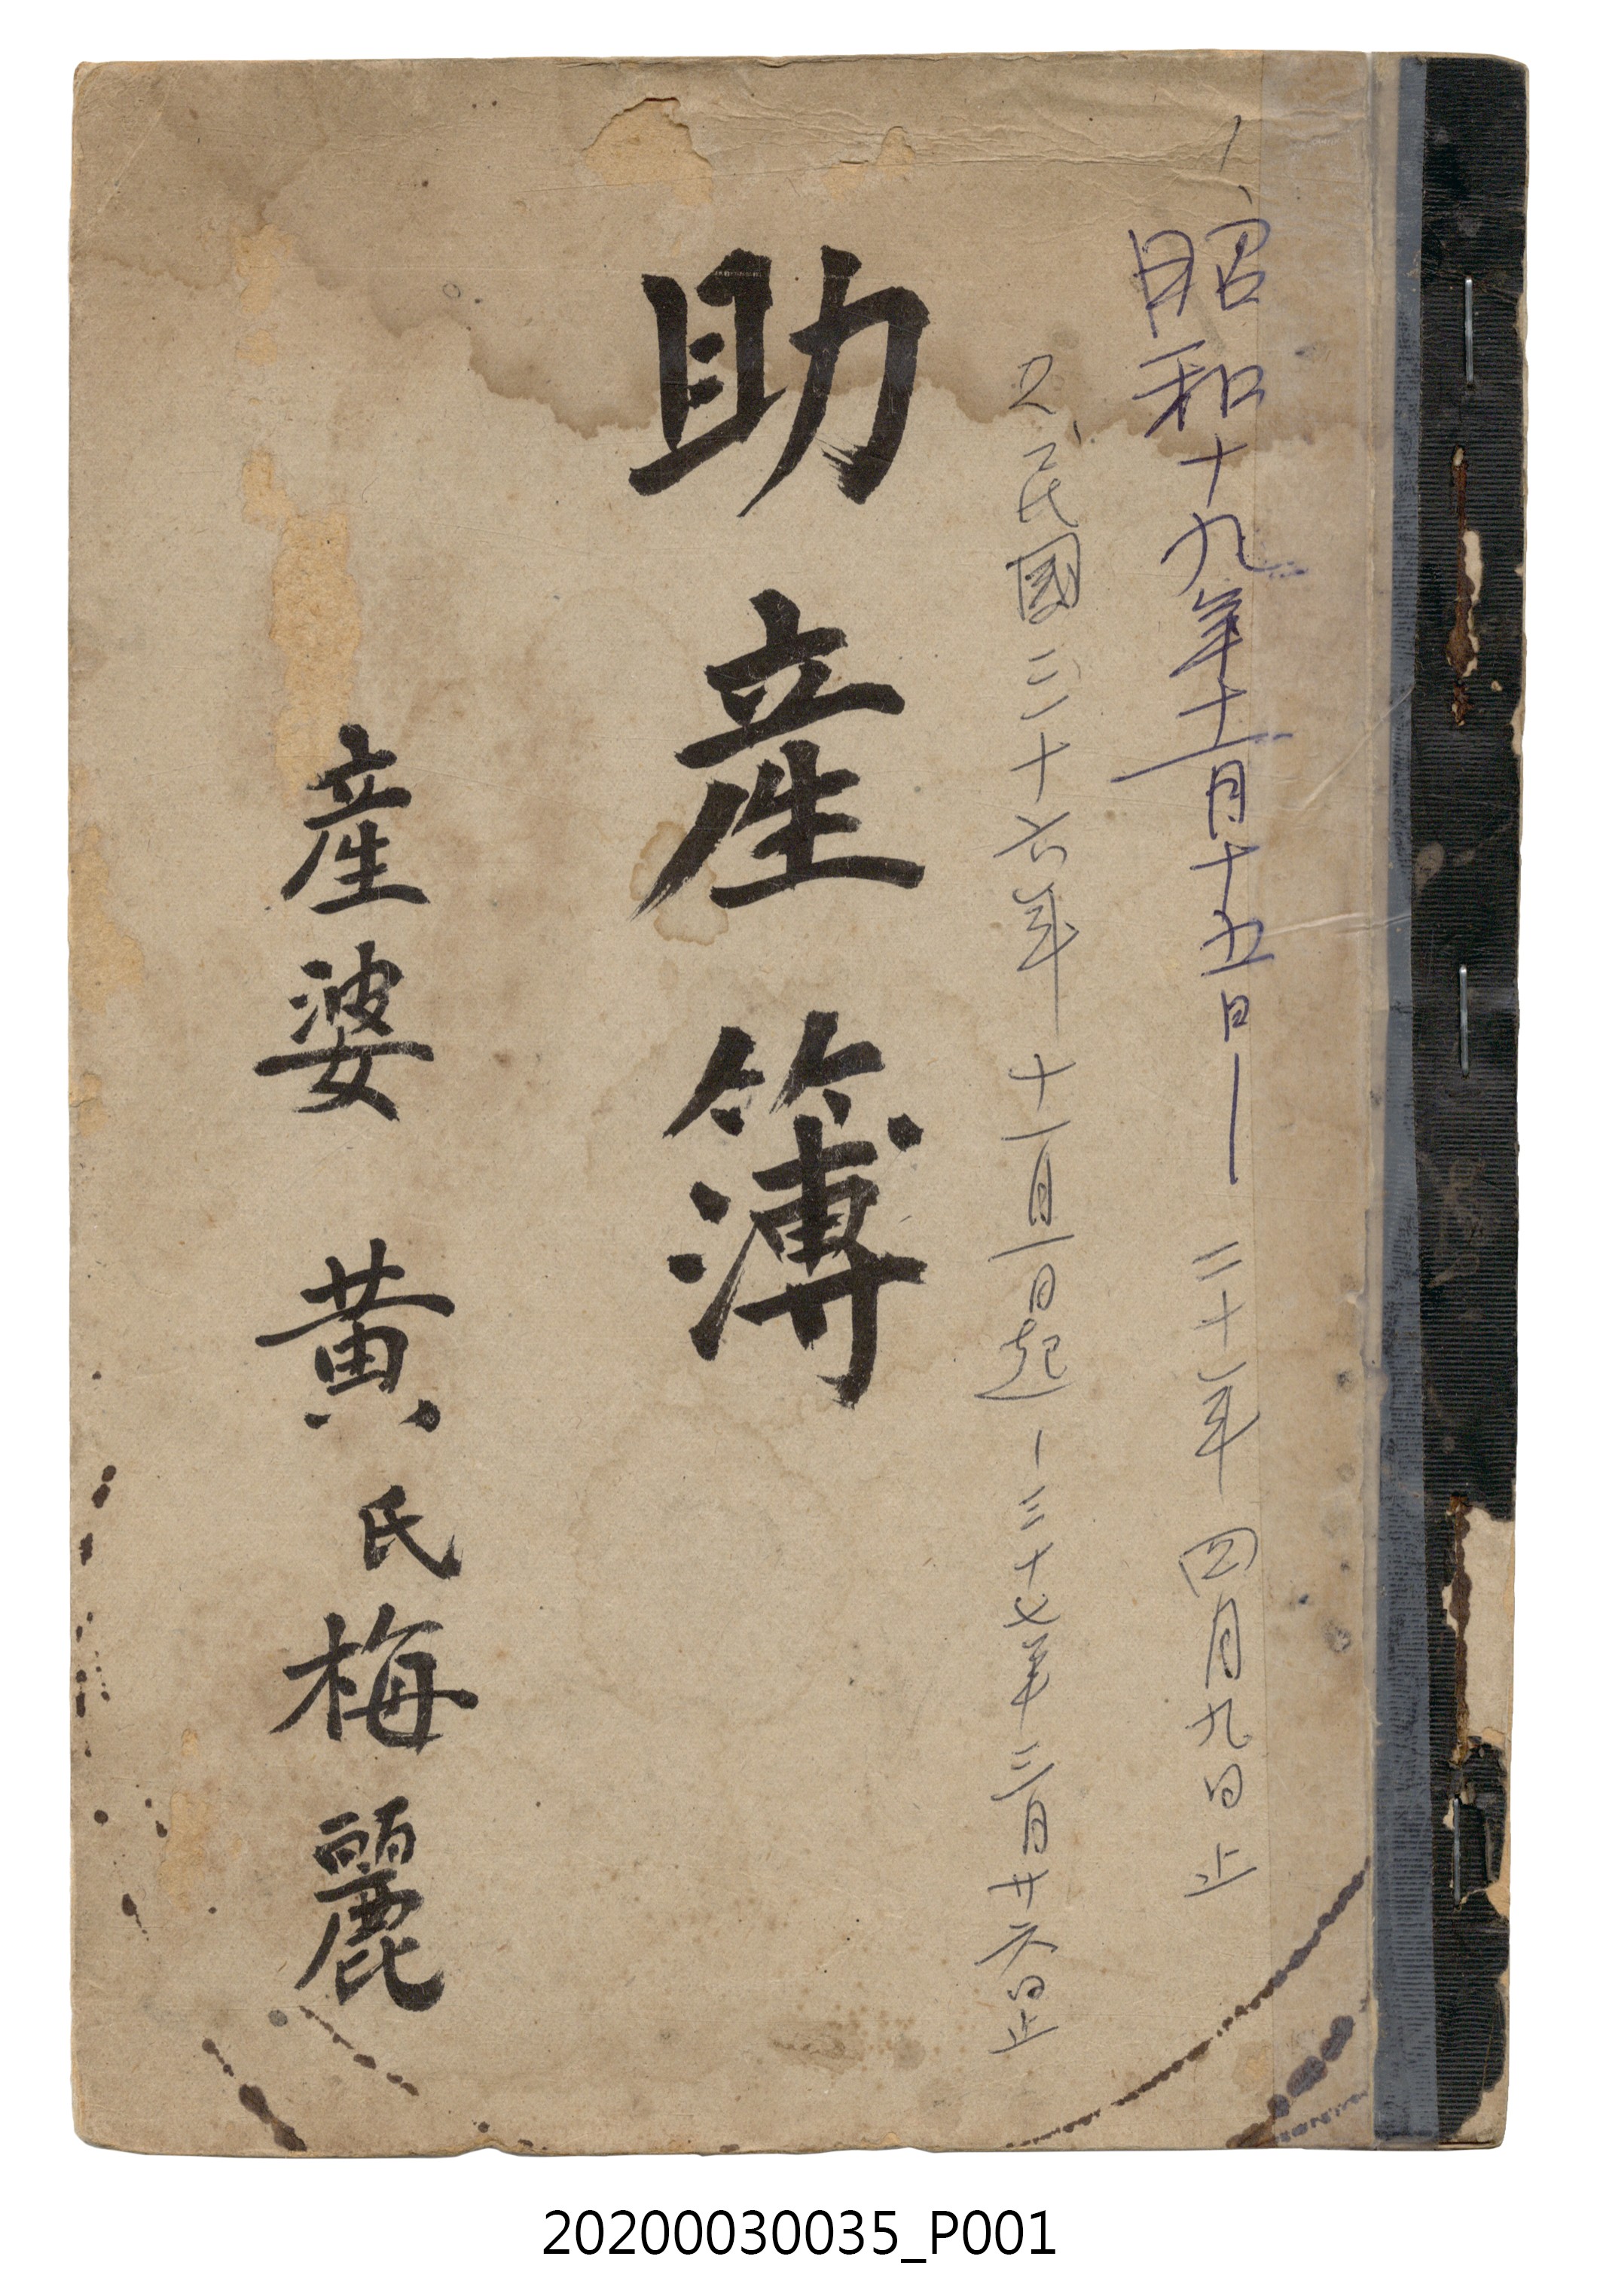 1、昭和十九年十一月十五日—二十一年四月九日止
2、民國三十六年十一月一日起-三十七年三月廿六日止
助產簿
產婆 黃氏梅麗
20200030035_P001